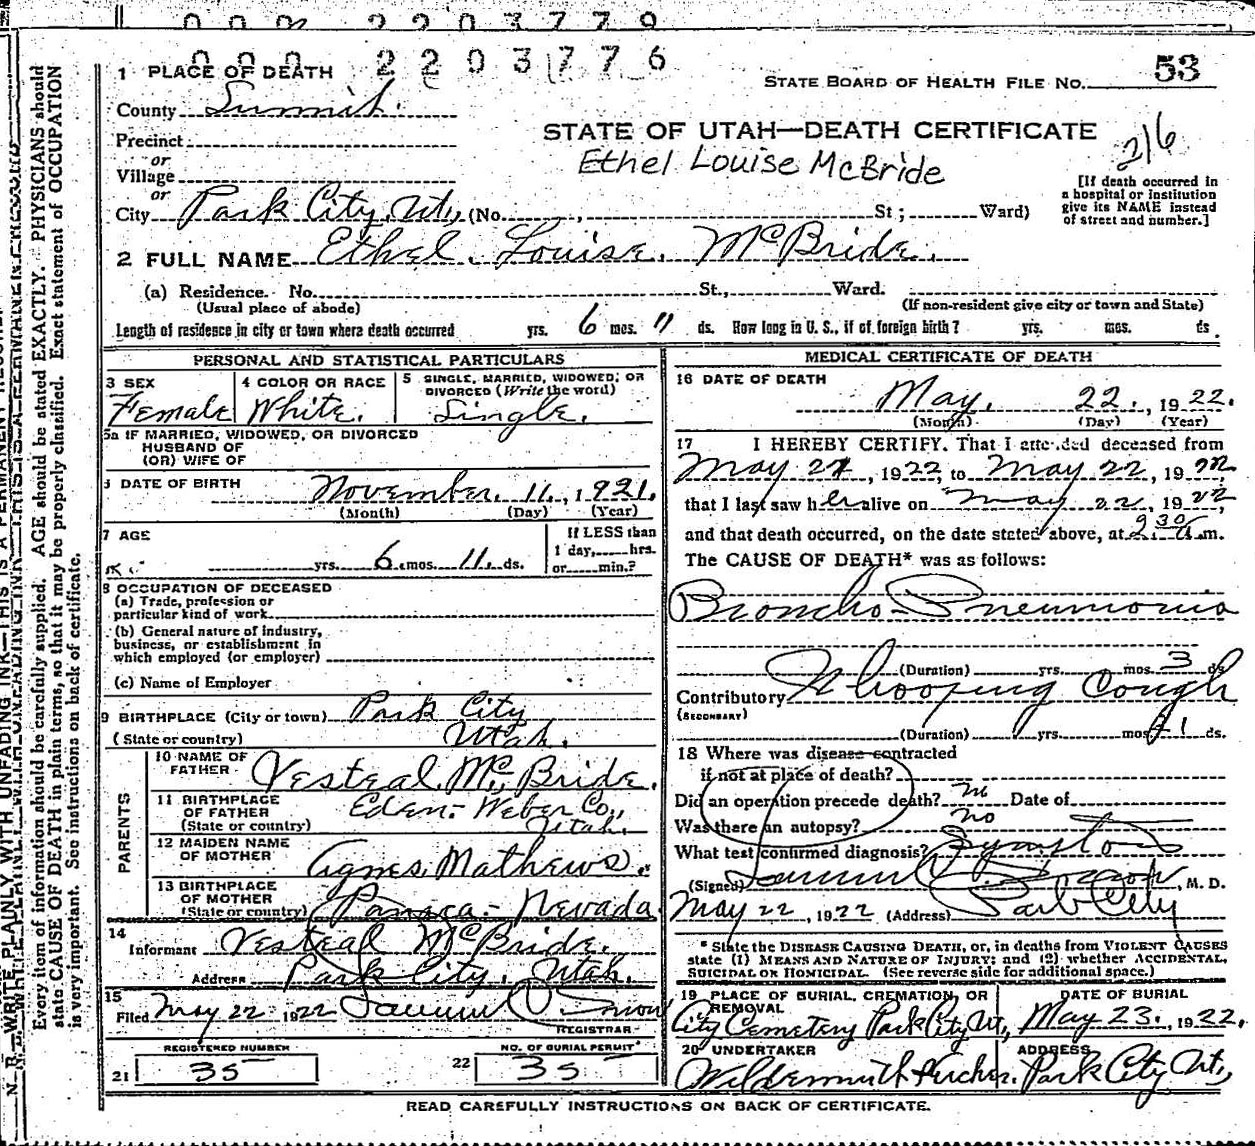 000 2203779
000 2203776
1 PLACE OF DEATH
STATE BOARD OF HEALTH FILE NO. 53
County Summit.
STATE OF UTAH—DEATH CERTIFICATE
Precinct
Ethel Louise McBride
216
or
Village
or
[If death occurred in
a hospital or institution
give its NAME instead
of street and number.]
City Park City, Ut., (No. , St; Ward)
2 FULL NAME Ethel Louise McBride.
(a) Residence. No. St., Ward.
(Usual place of abode) (If non-resident give city or town and State)
Length of residence in city or town where death occurred yrs. 6 mos. 11 ds. How long in U. S., if of foreign birth? yrs. mos. ds.
PERSONAL AND STATISTICAL PARTICULARS
3 SEX
Female
4 COLOR OR RACE
White.
5 SINGLE, MARRIED, WIDOWED, OR
DIVORCED (Write the word)
Single.
5a IF MARRIED, WIDOWED, OR DIVORCED
HUSBAND OF
(OR) WIFE OF
DATE OF BIRTH November. 11, 1921.
(Month) (Day) (Year)
7 AGE
yrs. 6 mos. 11 ds.
If LESS than
1 day, hrs.
or min.?
8 OCCUPATION OF DECEASED
(a) Trade, profession or
particular kind of work
(b) General nature of industry,
business, or establishment in
which employed (or employer)
(c) Name of Employer
9 BIRTHPLACE (City or town) Park City
(State or country) Utah.
PARENTS
10 NAME OF
FATHER Vesteal McBride.
11 BIRTHPLACE
OF FATHER
(State or country) Eden- Weber Co.,
Utah.
12 MAIDEN NAME
OF MOTHER Agnes Mathews.
13 BIRTHPLACE
OF MOTHER
(State or country) Panaca- Nevada
14
Informant Vesteal McBride.
Address Park City, Utah.
15
Filed May 22 1922
REGISTRAR
REGISTERED NUMBER
21 35
NO. OF BURIAL PERMIT
22 35
MEDICAL CERTIFICATE OF DEATH
16 DATE OF DEATH
May. 22., 1922.
(Month) (Day) (Year)
17 I HEREBY CERTIFY. That I attended deceased from
May 21, 1922, to May 22, 1922
that I last saw her alive on May 22, 1922
and that death occurred, on the date stated above, at 9:30 a.m.
The CAUSE OF DEATH* was as follows:
Broncho-Pneumonia
(Duration) yrs. mos. 3 ds.
Contributory Whooping Cough
(SECONDARY)
(Duration) yrs. mos. 21 ds.
18 Where was disease contracted
if not at place of death?
Did an operation precede death? no Date of
Was there an autopsy? no
What test confirmed diagnosis?
(Signed) , M. D.
May 22, 1922 (Address) Park City
* State the DISEASE CAUSING DEATH, or, in deaths from VIOLENT CAUSES
state (1) MEANS AND NATURE OF INJURY; and (2) whether ACCIDENTAL,
SUICIDAL OR HOMICIDAL. (See reverse side for additional space.)
19 PLACE OF BURIAL, CREMATION, OR
REMOVAL
City Cemetery Park City Ut.,
DATE OF BURIAL
May 23., 1922.
20 UNDERTAKER
ADDRESS
Park City Ut.,
READ CAREFULLY INSTRUCTIONS ON BACK OF CERTIFICATE.
N. B.—WRITE PLAINLY WITH UNFADING INK—THIS IS A PERMANENT
Every item of information should be carefully supplied. AGE should be stated EXACTLY. PHYSICIANS should
state CAUSE OF DEATH in plain terms, so that it may be properly classified. Exact statement of OCCUPATION
is very important. See instructions on back of certificate.